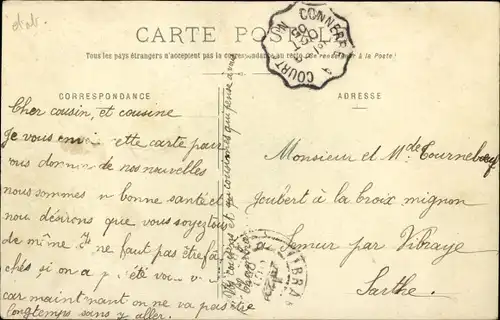 CARTE POSTALE
Tous les pays étrangers n'acceptent pas la correspondance au recto (se renseigner à la Poste)
CORRESPONDANCE
ADRESSE
Cher cousin, et cousine
Je vous cette carte pour
vous donner de nos nouvelles
nous sommes bonne santé et
nou désirons que vous soyez tous
de même ne faut pas être fa
chés si on a p été
car maintenant on ne va pas être
longtemps sans y aller.
Vos cousins et cousines qui pense à vous
Monsieur et Mde Tournebœuf
Joubert à la Croix mignon
Semur par Vibraye
Sarthe.
CONNERRÉ A COURT
VIBRAYE